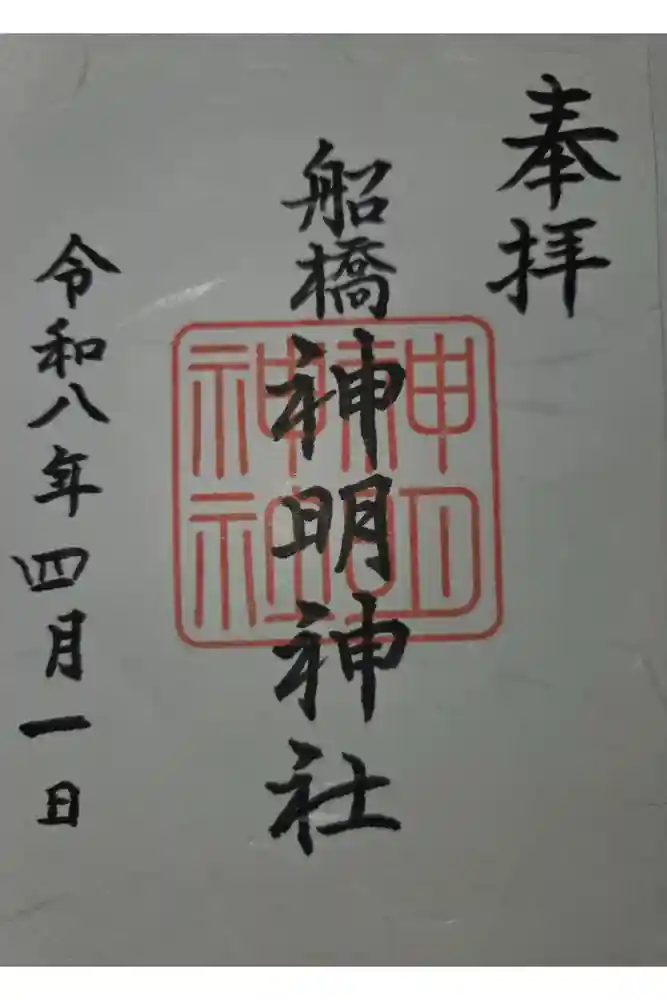 奉拝
船橋神明神社
神明
神社
令和八年四月一日